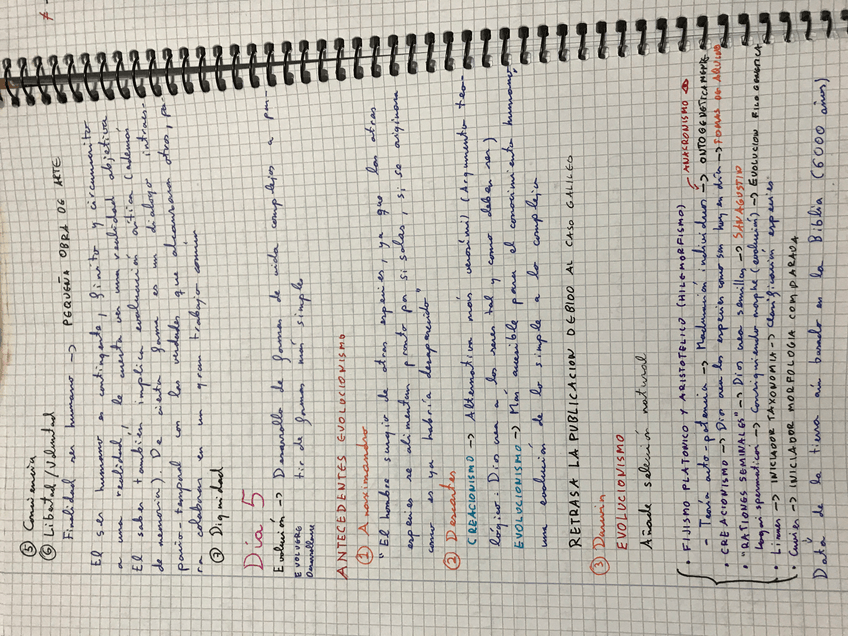 ⑤ Conciencia
⑥ Libertad/Voluntad
Finalidad ser humano → PEQUEÑA OBRA DE ARTE
El ser humano es contingente, finito y circunscrito
a una realidad, le cuesta ver una realidad objetiva
El saber tambien implica evaluación crítica (además
de memoria). De cierta forma es un dialogo intraes-
pacio-temporal con las verdades que alcanzaron otros, pa-
ra colaborar en un gran trabajo común
⑦ Dignidad
Día 5
Evolución → Desarrollo de formas de vida complejos a par-
EVOLVERE tir de formas más simple
Desarrollarse
ANTECEDENTES EVOLUCIONISMO
① Anaximandro
"El hombre surgio de otras especies, ya que las otras
especies se alimentan pronto por si solas, si se originara
como es ya habría desaparecido"
② Descartes
CREACIONISMO → Alternativa más verosimil (Argumento teo-
lógico: Dios crea a los seres tal y como deben ser)
EVOLUCIONISMO → Mas accesible para el conocimiento humano,
una evolución de lo simple a lo complejo
RETRASA LA PUBLICACION DEBIDO AL CASO GALILEO
③ Darwin
EVOLUCIONISMO
Añade selección natural
• FIJISMO PLATONICO Y ARISTOTELICO (HILEMORFISMO) ANACRONISMO
- Teoría acto-potencia → Maduración individuos → ONTOGENETICAMENTE
• CREACIONISMO → Dios crea las especies como son hoy en día → TOMAS DE AQUINO
• "RATIONES SEMINALES" → Dios crea semillas → SAN AGUSTIN
logoi spermaticos → Consiguiendo morphe (evolución) → EVOLUCION FILOGENETICA
• Linneo → INICIADOR TAXONOMIA → Clasificación especies
• Cuvier → INICIADOR MORFOLOGIA COMPARADA
Data de la tierra aún basada en la Biblia (6000 años)